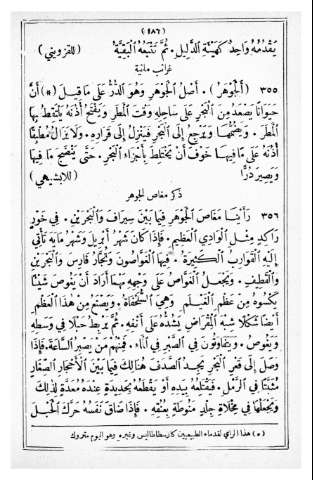 (١٨٦)
يَقْدُمُهُ وَاحِدٌ كَهَيْئَةِ الدَّلِيلِ. ثُمَّ تَتْبَعُهُ الْبَقِيَّةُ (للقزويني)
غرائب مائية
٣٥٥ (أَلْجَوْهَرُ). أَصْلُ الْجَوْهَرِ وَهُوَ الدُّرُّ عَلَى مَا قِيلَ (*) أَنَّ
حَيَوَانًا يَصْعَدُ مِنَ الْبَحْرِ عَلَى سَاحِلِهِ وَقْتَ الْمَطَرِ وَيَفْتَحُ أُذُنَهُ يَلْتَقِطُ بِهَا
الْمَطَرَ. وَيَضُمُّهَا وَيَرْجِعُ إِلَى الْبَحْرِ فَيَنْزِلُ إِلَى قَرَارِهِ. وَلَا يَزَالُ مُطْبِقًا
أُذُنَهُ عَلَى مَا فِيهَا خَوْفَ أَنْ يَخْتَلِطَ بِأَجْزَاءِ الْبَحْرِ. حَتَّى يَنْضَجَ مَا فِيهَا
وَيَصِيرَ دُرًّا (للابشيهي)
ذكر مغاص الجوهر
٣٥٦ رَأَيْنَا مَغَاصَ الْجَوْهَرِ فِيمَا بَيْنَ سِيرَافَ وَالْبَحْرَيْنِ. فِي خَوْرٍ
رَاكِدٍ مِثْلِ الْوَادِي الْعَظِيمِ. فَإِذَا كَانَ شَهْرُ أَبْرِيلَ وَشَهْرُ مَايَهْ تَأْتِي
إِلَيْهِ الْقَوَارِبُ الْكَثِيرَةُ. فِيهَا الْغَوَّاصُونَ وَتُجَّارُ فَارِسَ وَالْبَحْرَيْنِ
وَالْقَطِيفِ. وَيَجْعَلُ الْغَوَّاصُ عَلَى وَجْهِهِ مَهْمَا أَرَادَ أَنْ يَغُوصَ شَيْئًا
يَكْسُوهُ مِنْ عَظْمِ الْغَيْلَمِ وَهِيَ السُّلَحْفَاةُ. وَيَصْنَعُ مِنْ هَذَا الْعَظْمِ
أَيْضًا شَكْلًا شِبْهَ الْمِقْرَاضِ يَشُدُّهُ عَلَى أَنْفِهِ. ثُمَّ يَرْبِطُ حَبْلًا فِي وَسَطِهِ
وَيَغُوصُ. وَيَتَفَاوَتُونَ فِي الصَّبْرِ فِي الْمَاءِ. فَمِنْهُمْ مَنْ يَصْبِرُ السَّاعَةَ. فَإِذَا
وَصَلَ إِلَى قَعْرِ الْبَحْرِ يَجِدُ الصَّدَفَ هُنَالِكَ فِيمَا بَيْنَ الْأَحْجَارِ الصِّغَارِ
مُثْبَتًا فِي الرَّمْلِ. فَيَقْتَلِعُهُ بِيَدِهِ أَوْ يَقْطَعُهُ بِحَدِيدَةٍ عِنْدَهُ مُعَدَّةٍ لِذَلِكَ
وَيَجْعَلُهَا فِي مِخْلَاةِ جِلْدٍ مَنُوطَةٍ بِعُنُقِهِ. فَإِذَا ضَاقَ نَفَسُهُ حَرَّكَ الْحَبْلَ
(*) هذا الراي لقدماء الطبيعيين كارسطاطاليس وغيره وهو اليوم متروك